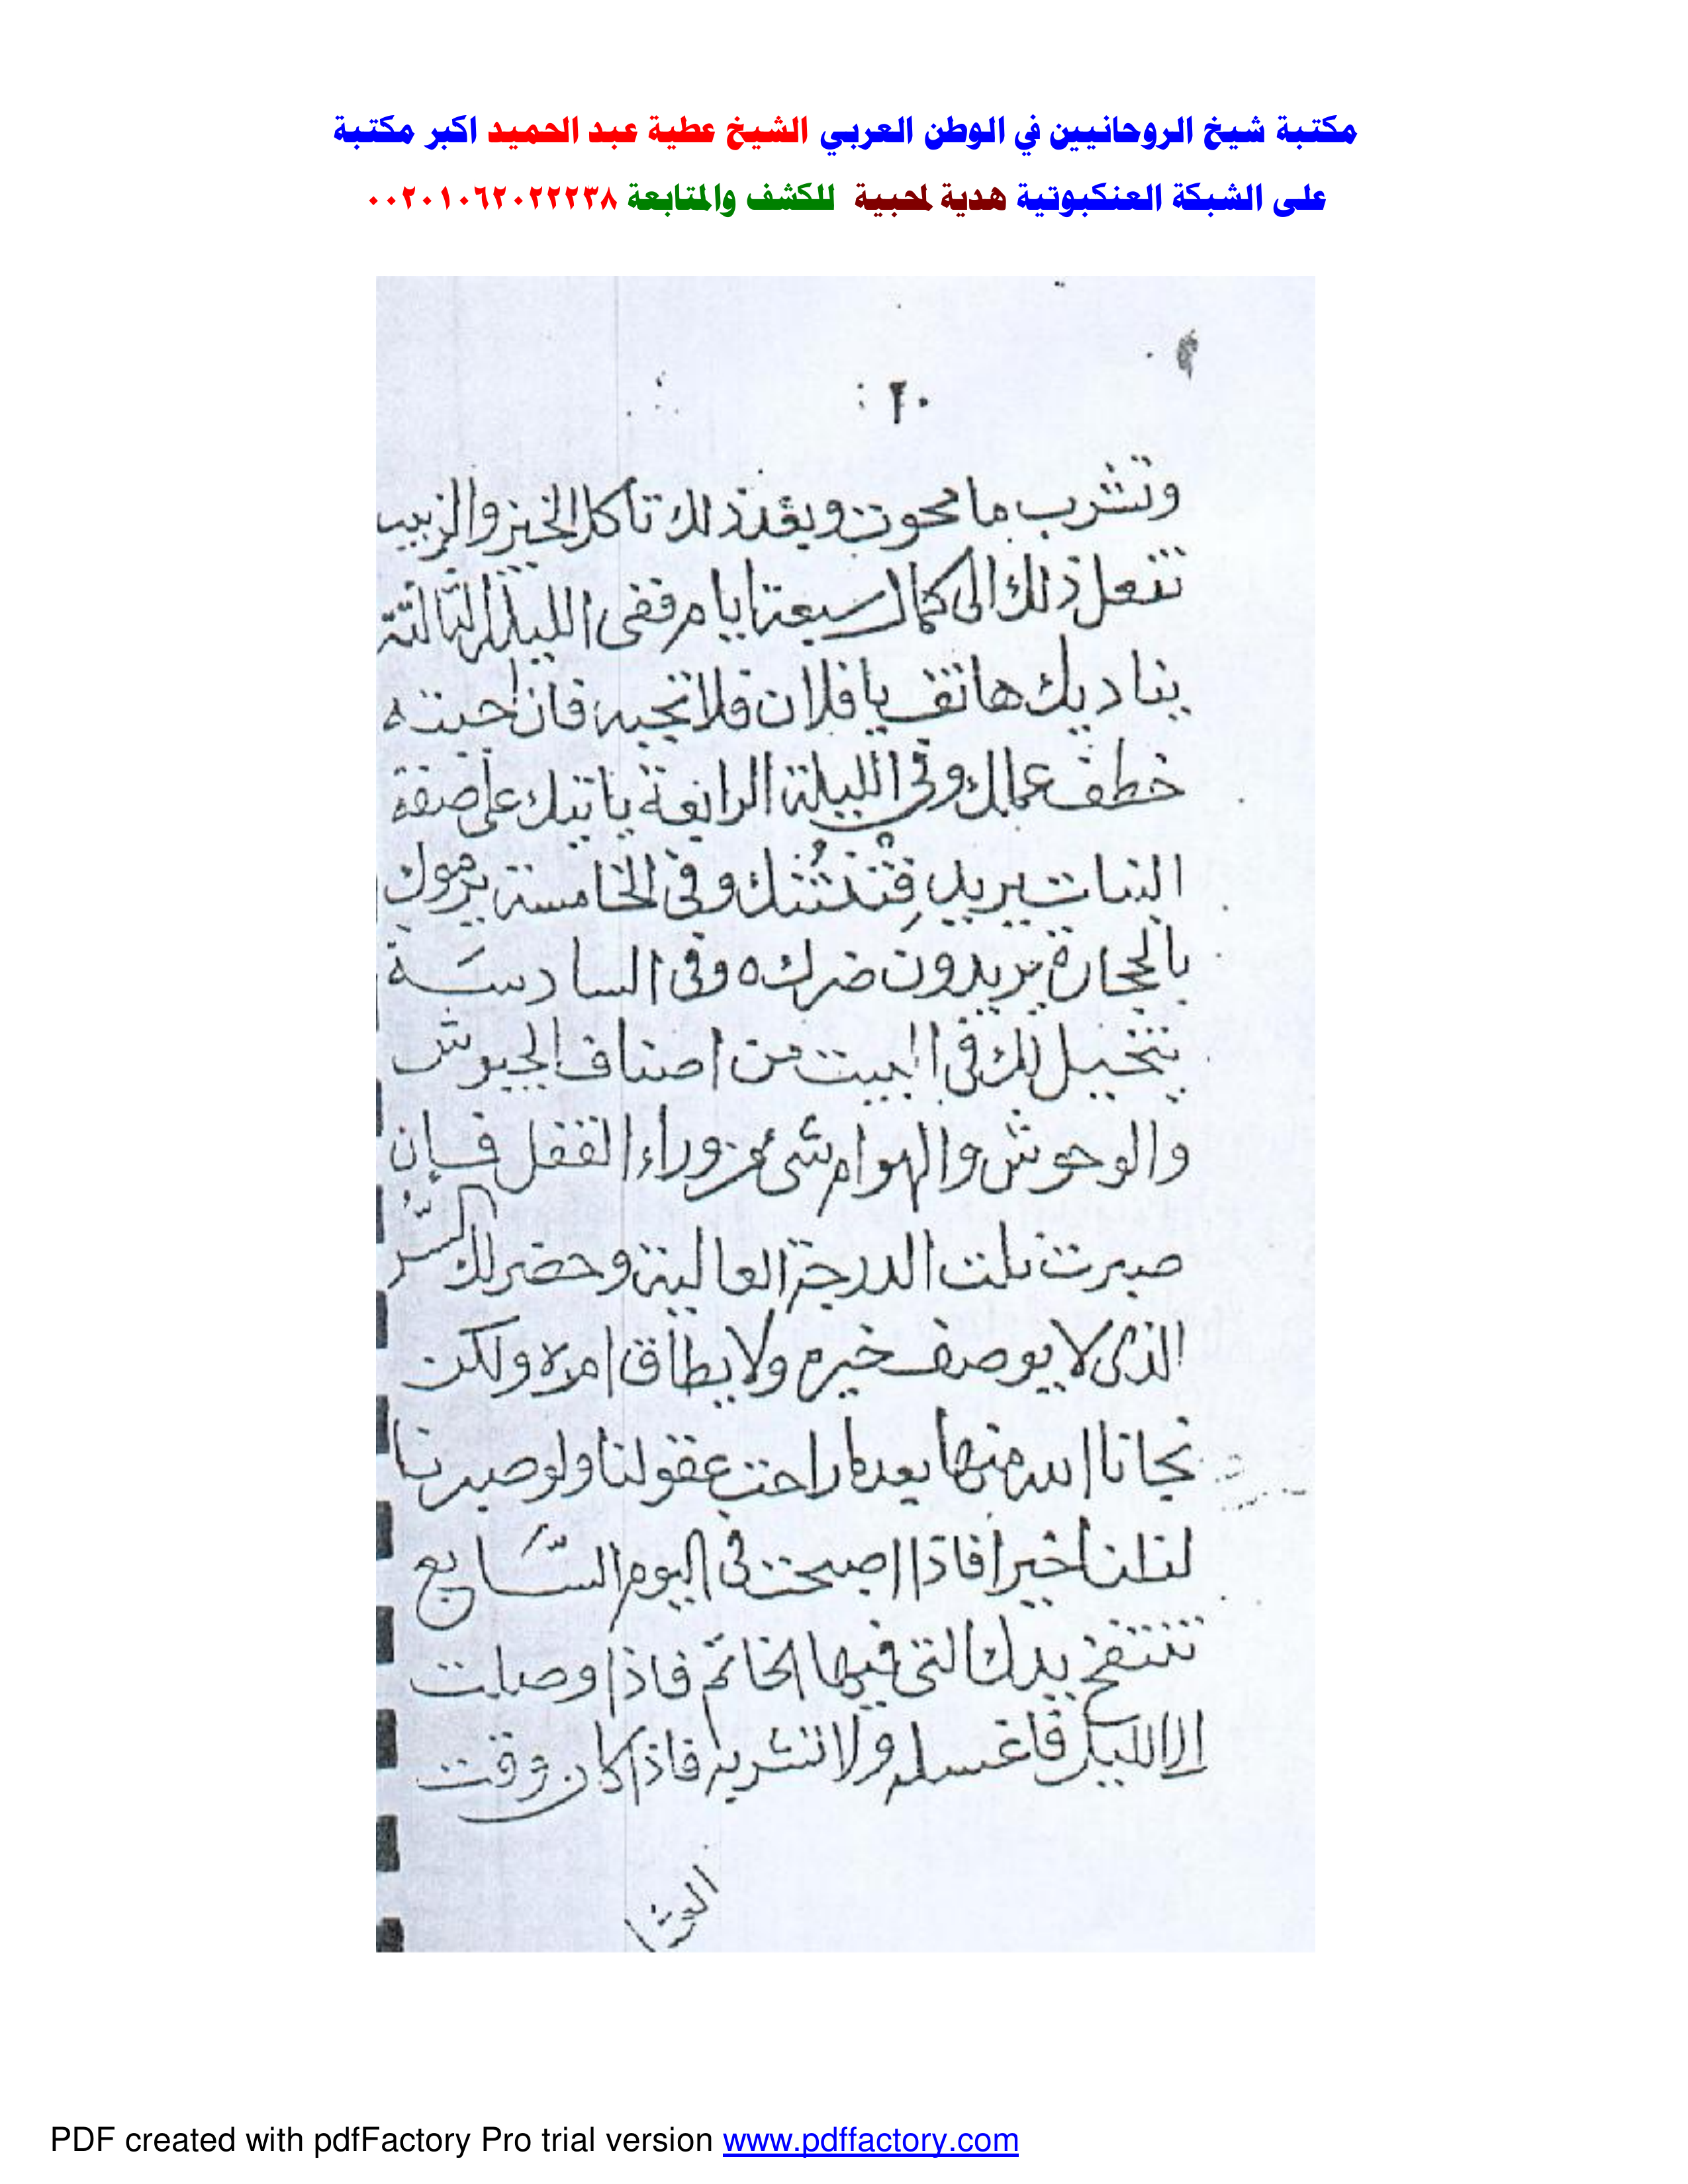 مكتبة شيخ الروحانيين في الوطن العربي الشيخ عطية عبد الحميد اكبر مكتبة
على الشبكة العنكبوتية هدية لمحبية للكشف والمتابعة ٠٠٢٠١٠٦٢٠٢٢٢٣٨
٢٠
وتشرب ما محوت وبعد ذلك تأكل الخبز والزبيب
تفعل ذلك الى كمال سبعة ايام ففى الليلة الثالثة
يناديك هاتف يا فلان فلا تجبه فان اجبته
خطف عمالك وفى الليلة الرابعة ياتيك على صفة
النبات يريد وفى الخامسة يرموك
بالحجارة يريدون ضرك وفى السادسة
يتخيل لك فى البيت من اصناف الجيوش
والوحوش والهوام شئ من وراء القفل فإن
صبرت نلت الدرجة العالية وحضر لك السر
الذى لا يوصف خيره ولا يطاق امره ولكن
نجانا الله منها بعدما راحت عقولنا ولو صبرنا
لنلنا خيرا فاذا اصبحت فى اليوم السابع
تنتفخ يدك التى فيها الخاتم فاذا وصلت
الى الليل فاغسله ولا تشربه فاذا كان وقت
PDF created with pdfFactory Pro trial version www.pdffactory.com